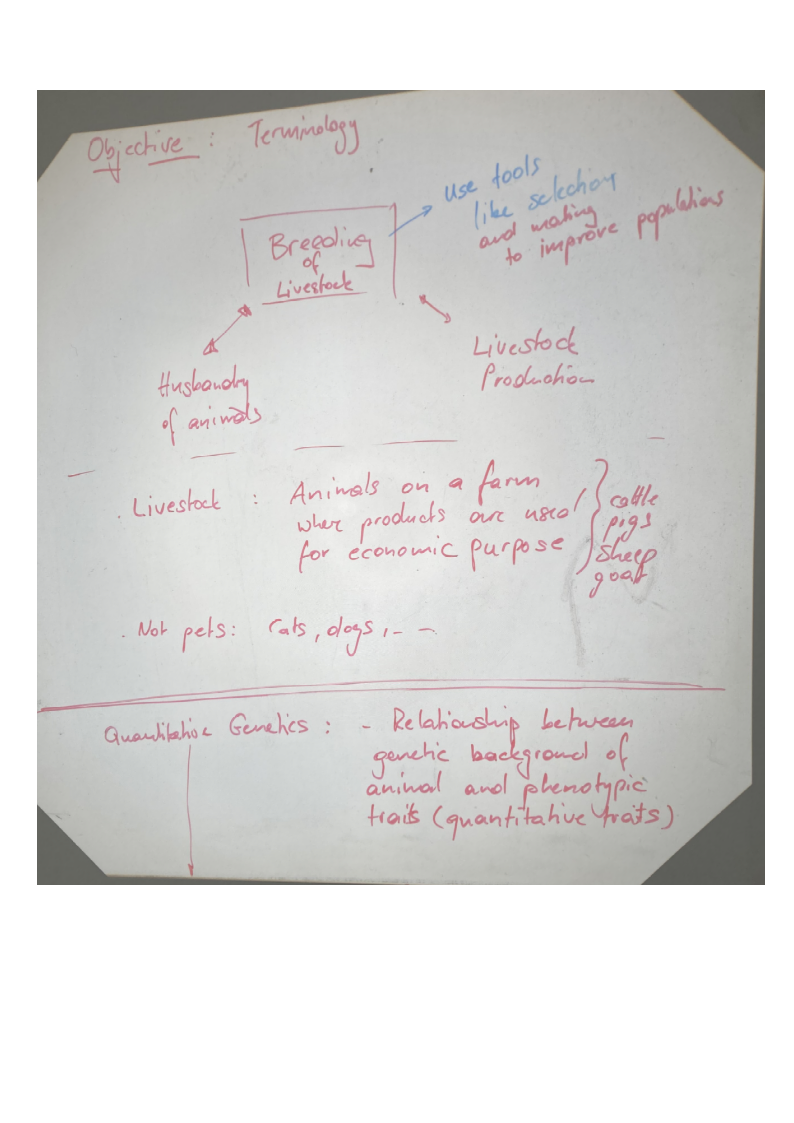 Objective : Terminology
use tools
like selection
and mating
to improve populations
Breeding
of
Livestock
Husbandry
of animals
Livestock
Production
Livestock : Animals on a farm
where products are used
for economic purpose
cattle
pigs
sheep
goat
Not pets: Cats, dogs, - -
Quantitative Genetics : - Relationship between
genetic background of
animal and phenotypic
traits (quantitative traits)